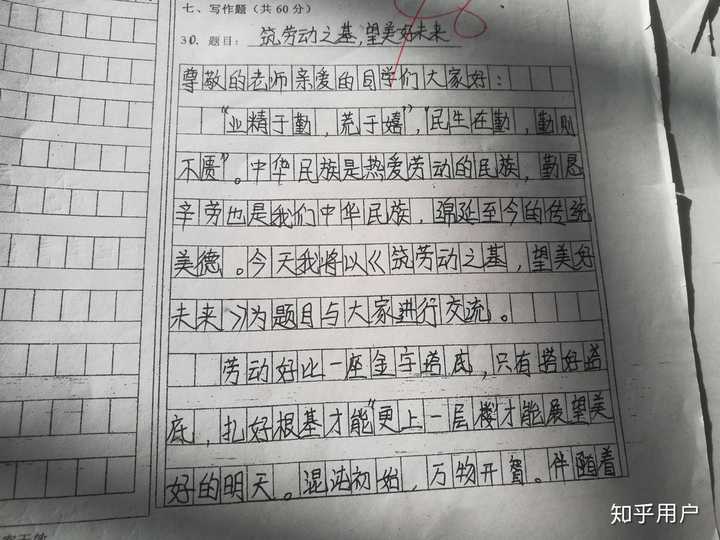 七、写作题（共60分）
48
30. 题目：筑劳动之基，望美好未来
尊敬的老师亲爱的同学们大家好：
“业精于勤，荒于嬉”，“民生在勤，勤则
不匮”。中华民族是热爱劳动的民族，勤恳
辛劳也是我们中华民族，绵延至今的传统
美德。今天我将以《筑劳动之基，望美好
未来》为题目与大家进行交流。
劳动好比一座金字塔底，只有搭好塔
底，扎好根基才能“更上一层楼”才能展望美
好的明天。混沌初始，万物开智。伴随着
知乎用户